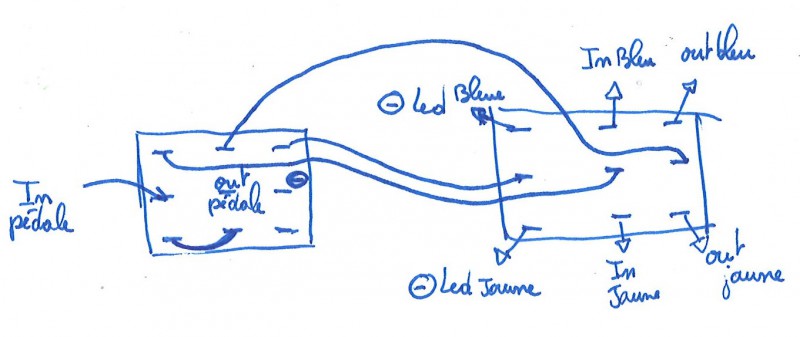 In Bleu
out bleu
⊖ Led Bleue
In
pédale
out
pédale
⊖
⊖ Led Jaune
In
Jaune
out
jaune